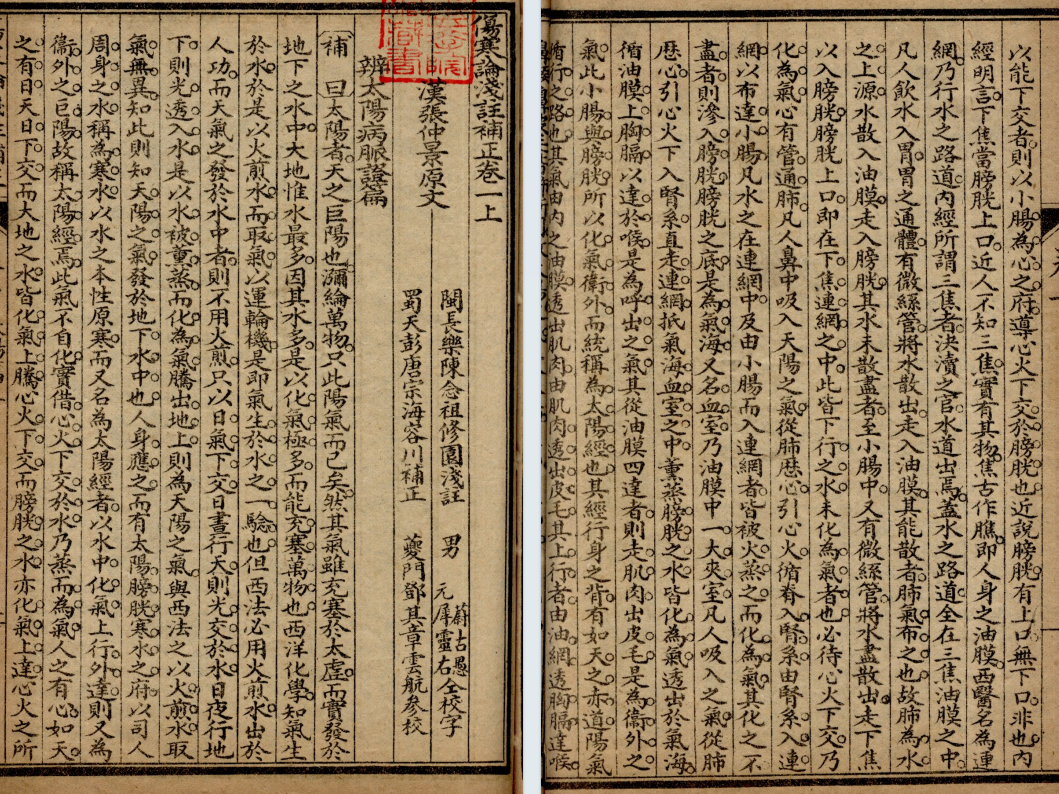 傷寒論淺註補正卷一上
漢張仲景原文
閩長樂陳念祖修園淺註 男 蔚古愚 元犀靈石 仝校字
蜀天彭唐宗海容川補正 夔門鄧其章雲航參校
辨太陽病脈證篇
補曰太陽者天之巨陽也瀰綸萬物只此陽氣而已矣然其氣雖充塞於太虛而實發於
地下之水中大地惟水最多因其水多是以化氣極多而能充塞萬物也西洋化學知氣生
於水於是以火煎水而取氣以運輪機是即氣生於水之一驗也但西法必用火煎水出於
人功而天氣之發於水中者則不用火煎只以日氣下交日晝行天則光交於水日夜行地
下則光透入水是以水被薰蒸而化為氣騰出地上則為天陽之氣與西法之以火煎水取
氣無異知此則知天陽之氣發於地下水中也人身應之而有太陽膀胱寒水之府以司人
周身之水稱為寒水以水之本性原寒而又名為太陽經者以水中化氣上行外達則又為
衞外之巨陽故稱太陽經焉此氣不自化實借心火下交於水乃蒸而為氣人之有心如天
之有日天日下交而大地之水皆化氣上騰心火下交而膀胱之水亦化氣上達心火之所
以能下交者則以小腸為心之府導心火下交於膀胱也近說膀胱有上口無下口非也內
經明言下焦當膀胱上口近人不知三焦實有其物焦古作膲即人身之油膜西醫名為連
網乃行水之路道內經所謂三焦者決瀆之官水道出焉蓋水之路道全在三焦油膜之中
凡人飲水入胃胃之通體有微絲管將水散出走入油膜其能散者肺氣布之也故肺為水
之上源水散入油膜走入膀胱其水未散盡者至小腸中又有微絲管將水盡散出走下焦
以入膀胱膀胱上口即在下焦連網之中此皆下行之水未化為氣者也必待心火下交乃
化為氣心有管通肺凡人鼻中吸入天陽之氣從肺歷心引心火循脊入腎系由腎系入連
網以布達小腸凡水之在連網中及由小腸而入連網者皆被火蒸之而化為氣其化之不
盡者則滲入膀胱膀胱之底是為氣海又名血室乃油膜中一大夾室凡人吸入之氣從肺
歷心引心火下入腎系直走連網抵氣海血室之中薰蒸膀胱之水皆化為氣透出於氣海
循油膜上胸膈以達於喉是為呼出之氣其從油膜四達者則走肌肉出皮毛是為衞外之
氣此小腸與膀胱所以化氣衞外而統稱為太陽經也其經行身之背有如天之亦道陽氣
循行之路也其氣由內之油膜透出肌肉由肌肉透出皮毛其上行者由油網透胸膈達喉